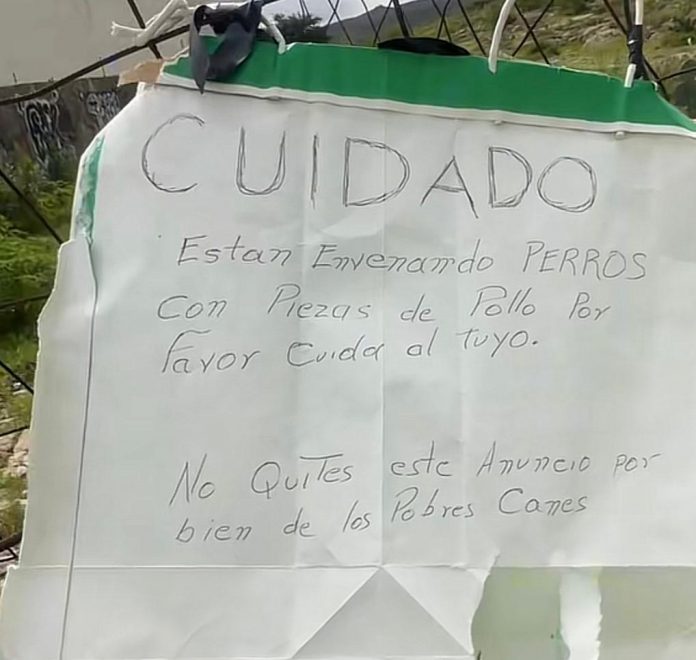 CUIDADO
Estan Envenando PERROS
con Piezas de Pollo Por
favor Cuida al tuyo.
No Quites este Anuncio por
bien de los Pobres Canes